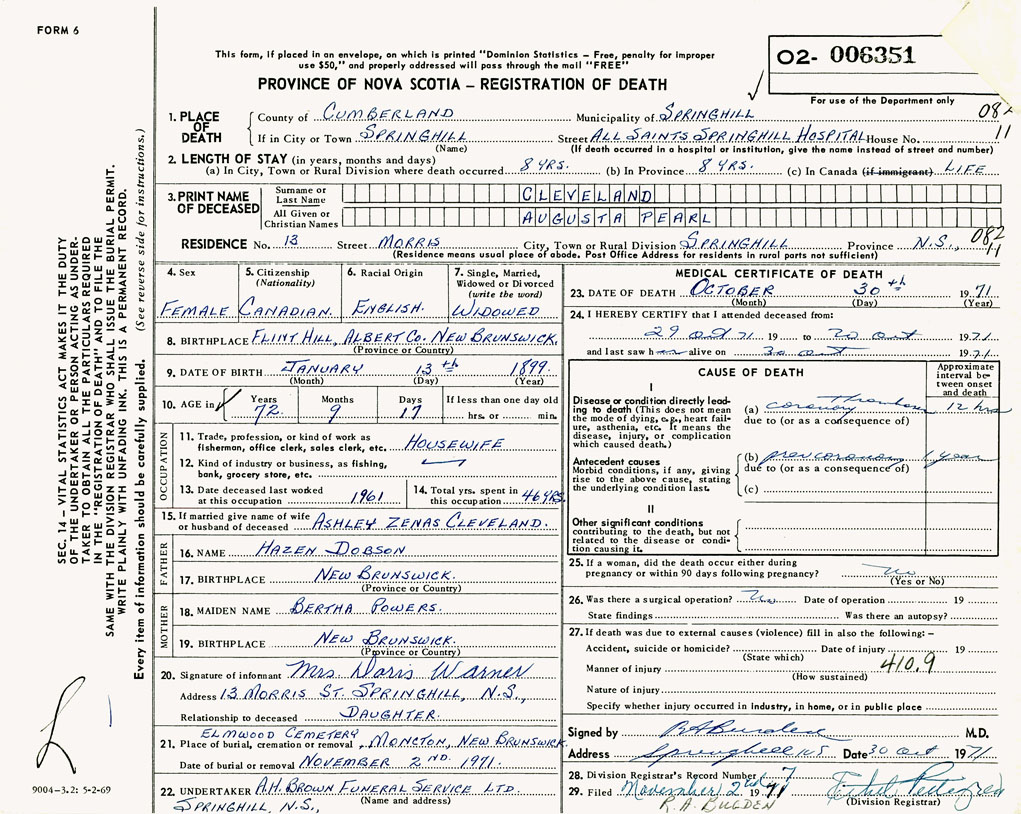 FORM 6
This form, if placed in an envelope, on which is printed "Dominion Statistics – Free, penalty for improper
use $50," and properly addressed will pass through the mail "FREE"
PROVINCE OF NOVA SCOTIA – REGISTRATION OF DEATH
02- 006351
For use of the Department only
1. PLACE OF DEATH
County of CUMBERLAND Municipality of SPRINGHILL 082
If in City or Town SPRINGHILL Street ALL SAINTS SPRINGHILL HOSPITAL House No. 11
(Name) (If death occurred in a hospital or institution, give the name instead of street and number)
2. LENGTH OF STAY (in years, months and days)
(a) In City, Town or Rural Division where death occurred 8 YRS. (b) In Province 8 YRS. (c) In Canada (if immigrant) LIFE
3. PRINT NAME OF DECEASED
Surname or Last Name CLEVELAND
All Given or Christian Names AUGUSTA PEARL
RESIDENCE No. 13 Street MORRIS City, Town or Rural Division SPRINGHILL Province N.S., 082
11
(Residence means usual place of abode. Post Office Address for residents in rural parts not sufficient)
4. Sex
FEMALE
5. Citizenship
(Nationality)
CANADIAN.
6. Racial Origin
ENGLISH.
7. Single, Married,
Widowed or Divorced
(write the word)
WIDOWED
8. BIRTHPLACE FLINT HILL, ALBERT CO. NEW BRUNSWICK.
(Province or Country)
9. DATE OF BIRTH JANUARY 13th 1899.
(Month) (Day) (Year)
10. AGE in Years Months Days If less than one day old
72. 9 17 hrs. or min.
OCCUPATION
11. Trade, profession, or kind of work as
fisherman, office clerk, sales clerk, etc. HOUSEWIFE
12. Kind of industry or business, as fishing,
bank, grocery store, etc.
13. Date deceased last worked
at this occupation 1961
14. Total yrs. spent in
this occupation 46 YRS.
15. If married give name of wife
or husband of deceased ASHLEY ZENAS CLEVELAND.
FATHER
16. NAME HAZEN DOBSON
17. BIRTHPLACE NEW BRUNSWICK.
(Province or Country)
MOTHER
18. MAIDEN NAME BERTHA POWERS.
19. BIRTHPLACE NEW BRUNSWICK.
(Province or Country)
20. Signature of informant Mrs. Doris Warner
Address 13 MORRIS ST. SPRINGHILL, N.S.,
Relationship to deceased DAUGHTER.
ELMWOOD CEMETERY
21. Place of burial, cremation or removal , MONCTON, NEW BRUNSWICK.
Date of burial or removal NOVEMBER 2ND. 1971.
22. UNDERTAKER A.H. BROWN FUNERAL SERVICE LTD.
SPRINGHILL, N.S., (Name and address)
MEDICAL CERTIFICATE OF DEATH
23. DATE OF DEATH OCTOBER 30th 1971
(Month) (Day) (Year)
24. I HEREBY CERTIFY that I attended deceased from:
29 Oct 71 19 to 30 Oct 1971
and last saw h alive on 30 Oct 1971
CAUSE OF DEATH
Approximate
interval be-
tween onset
and death
I
Disease or condition directly lead-
ing to death (This does not mean
the mode of dying, e.g., heart fail-
ure, asthenia, etc. It means the
disease, injury, or complication
which caused death.)
(a) coronary thrombosis 12 hrs
due to (or as a consequence of)
Antecedent causes
Morbid conditions, if any, giving
rise to the above cause, stating
the underlying condition last.
(b) prev coronary 1 year
due to (or as a consequence of)
(c)
II
Other significant conditions
contributing to the death, but not
related to the disease or condi-
tion causing it.
25. If a woman, did the death occur either during
pregnancy or within 90 days following pregnancy? no
(Yes or No)
26. Was there a surgical operation? no Date of operation 19
State findings Was there an autopsy?
27. If death was due to external causes (violence) fill in also the following: –
Accident, suicide or homicide? Date of injury 19
(State which)
Manner of injury 410.9
(How sustained)
Nature of injury
Specify whether injury occurred in industry, in home, or in public place
Signed by M.D.
Address Springhill NS Date 30 Oct 1971
28. Division Registrar's Record Number 7
29. Filed November 2nd 1971
R.A. BUGDEN (Division Registrar)
SEC. 14 – VITAL STATISTICS ACT MAKES IT THE DUTY
OF THE UNDERTAKER OR PERSON ACTING AS UNDER-
TAKER TO OBTAIN ALL THE PARTICULARS REQUIRED
IN THE "REGISTRATION OF DEATH" AND TO FILE THE
SAME WITH THE DIVISION REGISTRAR WHO SHALL ISSUE THE BURIAL PERMIT.
WRITE PLAINLY WITH UNFADING INK. THIS IS A PERMANENT RECORD.
Every item of information should be carefully supplied. (See reverse side for instructions.)
9004–3.2: 5-2-69